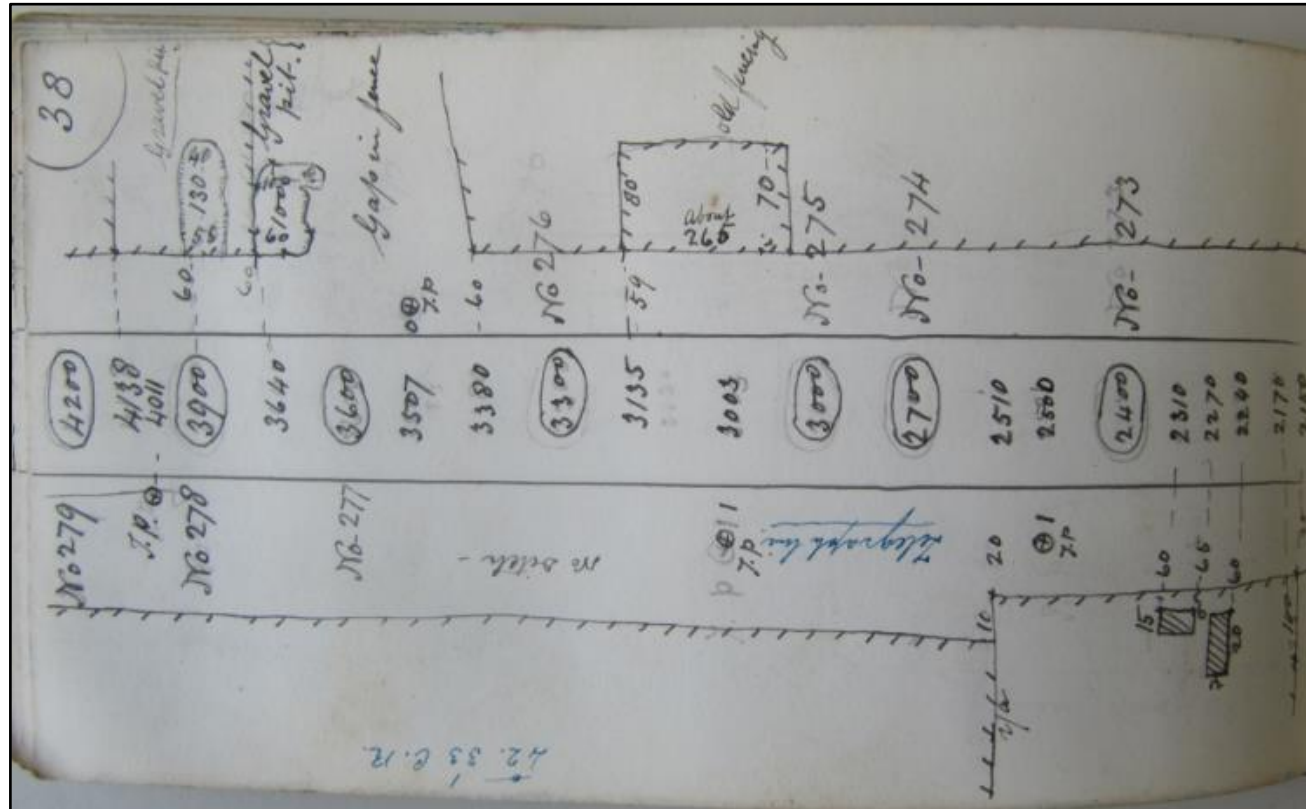 38
Gravel pit
130
Gravel
pit.
1000
Gap in fence
old fencing
80
260
about
70
60
60
T.P
60
No 276
59
No- 275
No- 274
No- 273
4200
4138
4011
3900
3640
3600
3507
3380
3300
3135
3003
3000
2700
2510
2500
2400
2310
2270
2240
2170
No 279
T.P.
No 278
No 277
no ditch
1
T.P
Telegraph line
20
1
T.P
10
60
65
60
15
20
100
42.33 C.R.